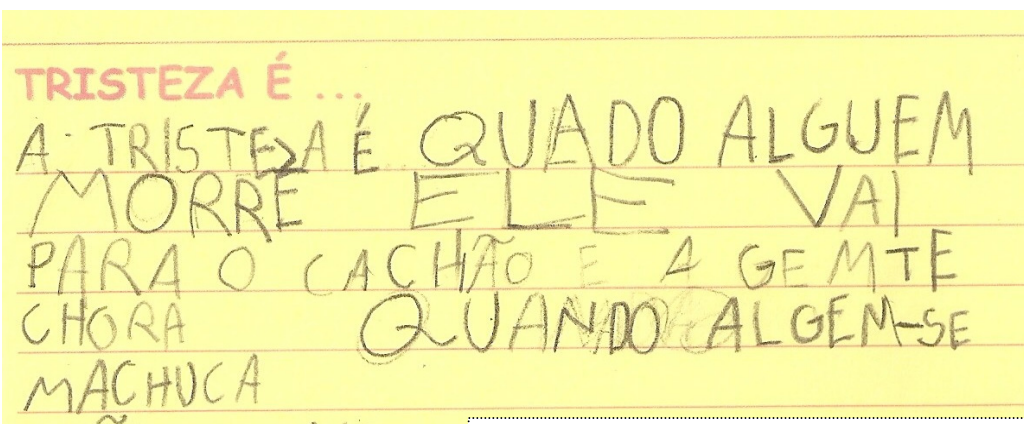 TRISTEZA É ...
A TRISTEZA É QUADO ALGUEM
MORRE ELE VAI
PARA O CACHÃO E A GEMTE
CHORA QUANDO ALGEM-SE
MACHUCA